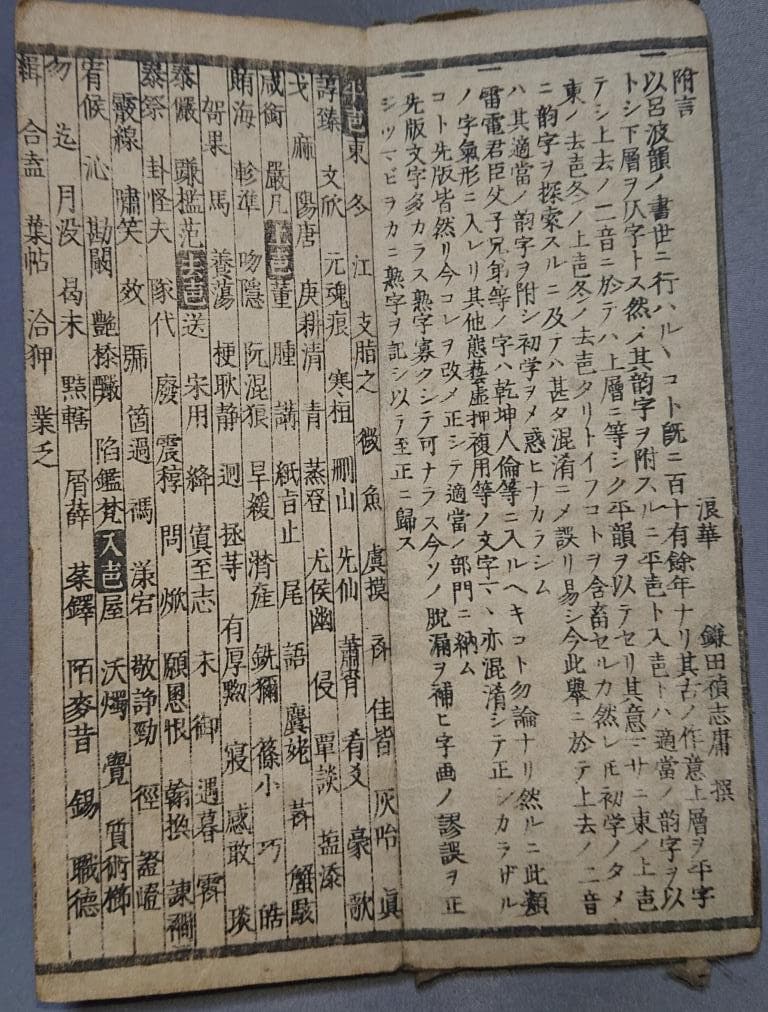 附言
浪華 鎌田禎志庸 撰
一以呂波韻ノ書世ニ行ハルヽコト既ニ百十有餘年ナリ其古ノ作意上層ヲ平字
トシ下層ヲ仄字トス然乄其韵字ヲ附スルニ平声ト入声トハ適當ノ韵字ヲ以
テシ上去ノ二音ニ於テハ上層ニ等シク平韻ヲ以テセリ其意ニサニ東ノ上声
東ノ去声冬ノ上声冬ノ去声タリトイフコトヲ含畜セルカ然レ𪜈初学ノタメ
ニ韵字ヲ探索スルニ及テハ甚タ混淆ニ乄誤リ易シ今此舉ニ於テ上去ノ二音
ハ其適當ノ韵字ヲ附シ初学ヲ乄惑ヒナカラシム
一雷電君臣父子兄弟等ノ字ハ乾坤人倫等ニ入ルヘキコト勿論ナリ然ルニ此類
ノ字氣形ニ入レリ其他態藝虚押複用等ノ文字ヽ亦混淆シテ正シカラザル
コト先版皆然リ今コレヲ改メ正シテ適當ノ部門ニ納ム
一先版文字多カラス熟字寡クシテ可ナラス今ソノ脱漏ヲ補ヒ字画ノ謬誤ヲ正
シツマビヲカニ熟字ヲ記シ以テ至正ニ歸ス
平声 東 冬 江 支脂之 微 魚 虞摸 斉 佳皆 灰咍 眞
諄臻 文欣 元魂痕 寒桓 刪山 先仙 蕭宵 肴爻 豪 歌
戈 麻 陽唐 庚耕清 青 蒸登 尤侯幽 侵 覃談 塩添
咸銜 嚴凡 上声 董 腫 講 紙旨止 尾 語 麌姥 薺 蟹駭
賄海 軫準 吻隱 阮混狠 旱緩 潸産 銑獮 篠小 巧 皓
哿果 馬 養蕩 梗耿静 迥 拯等 有厚黝 寝 感敢 琰
忝儼 豏檻范 去声 送 宋用 絳 寘至志 未 御 遇暮 霽
泰祭 卦怪夬 隊代 廢 震稕 問 焮 願慁恨 翰換 諫襇
霰線 嘯笑 效 號 箇過 禡 漾宕 敬諍勁 徑 證嶝
宥候 沁 勘闞 艶㮇釅 陷鑑梵 入声 屋 沃燭 覺 質術櫛
勿 迄 月没 曷末 黠轄 屑薛 薬鐸 陌麥昔 錫 職德
緝 合盍 葉帖 洽狎 業乏